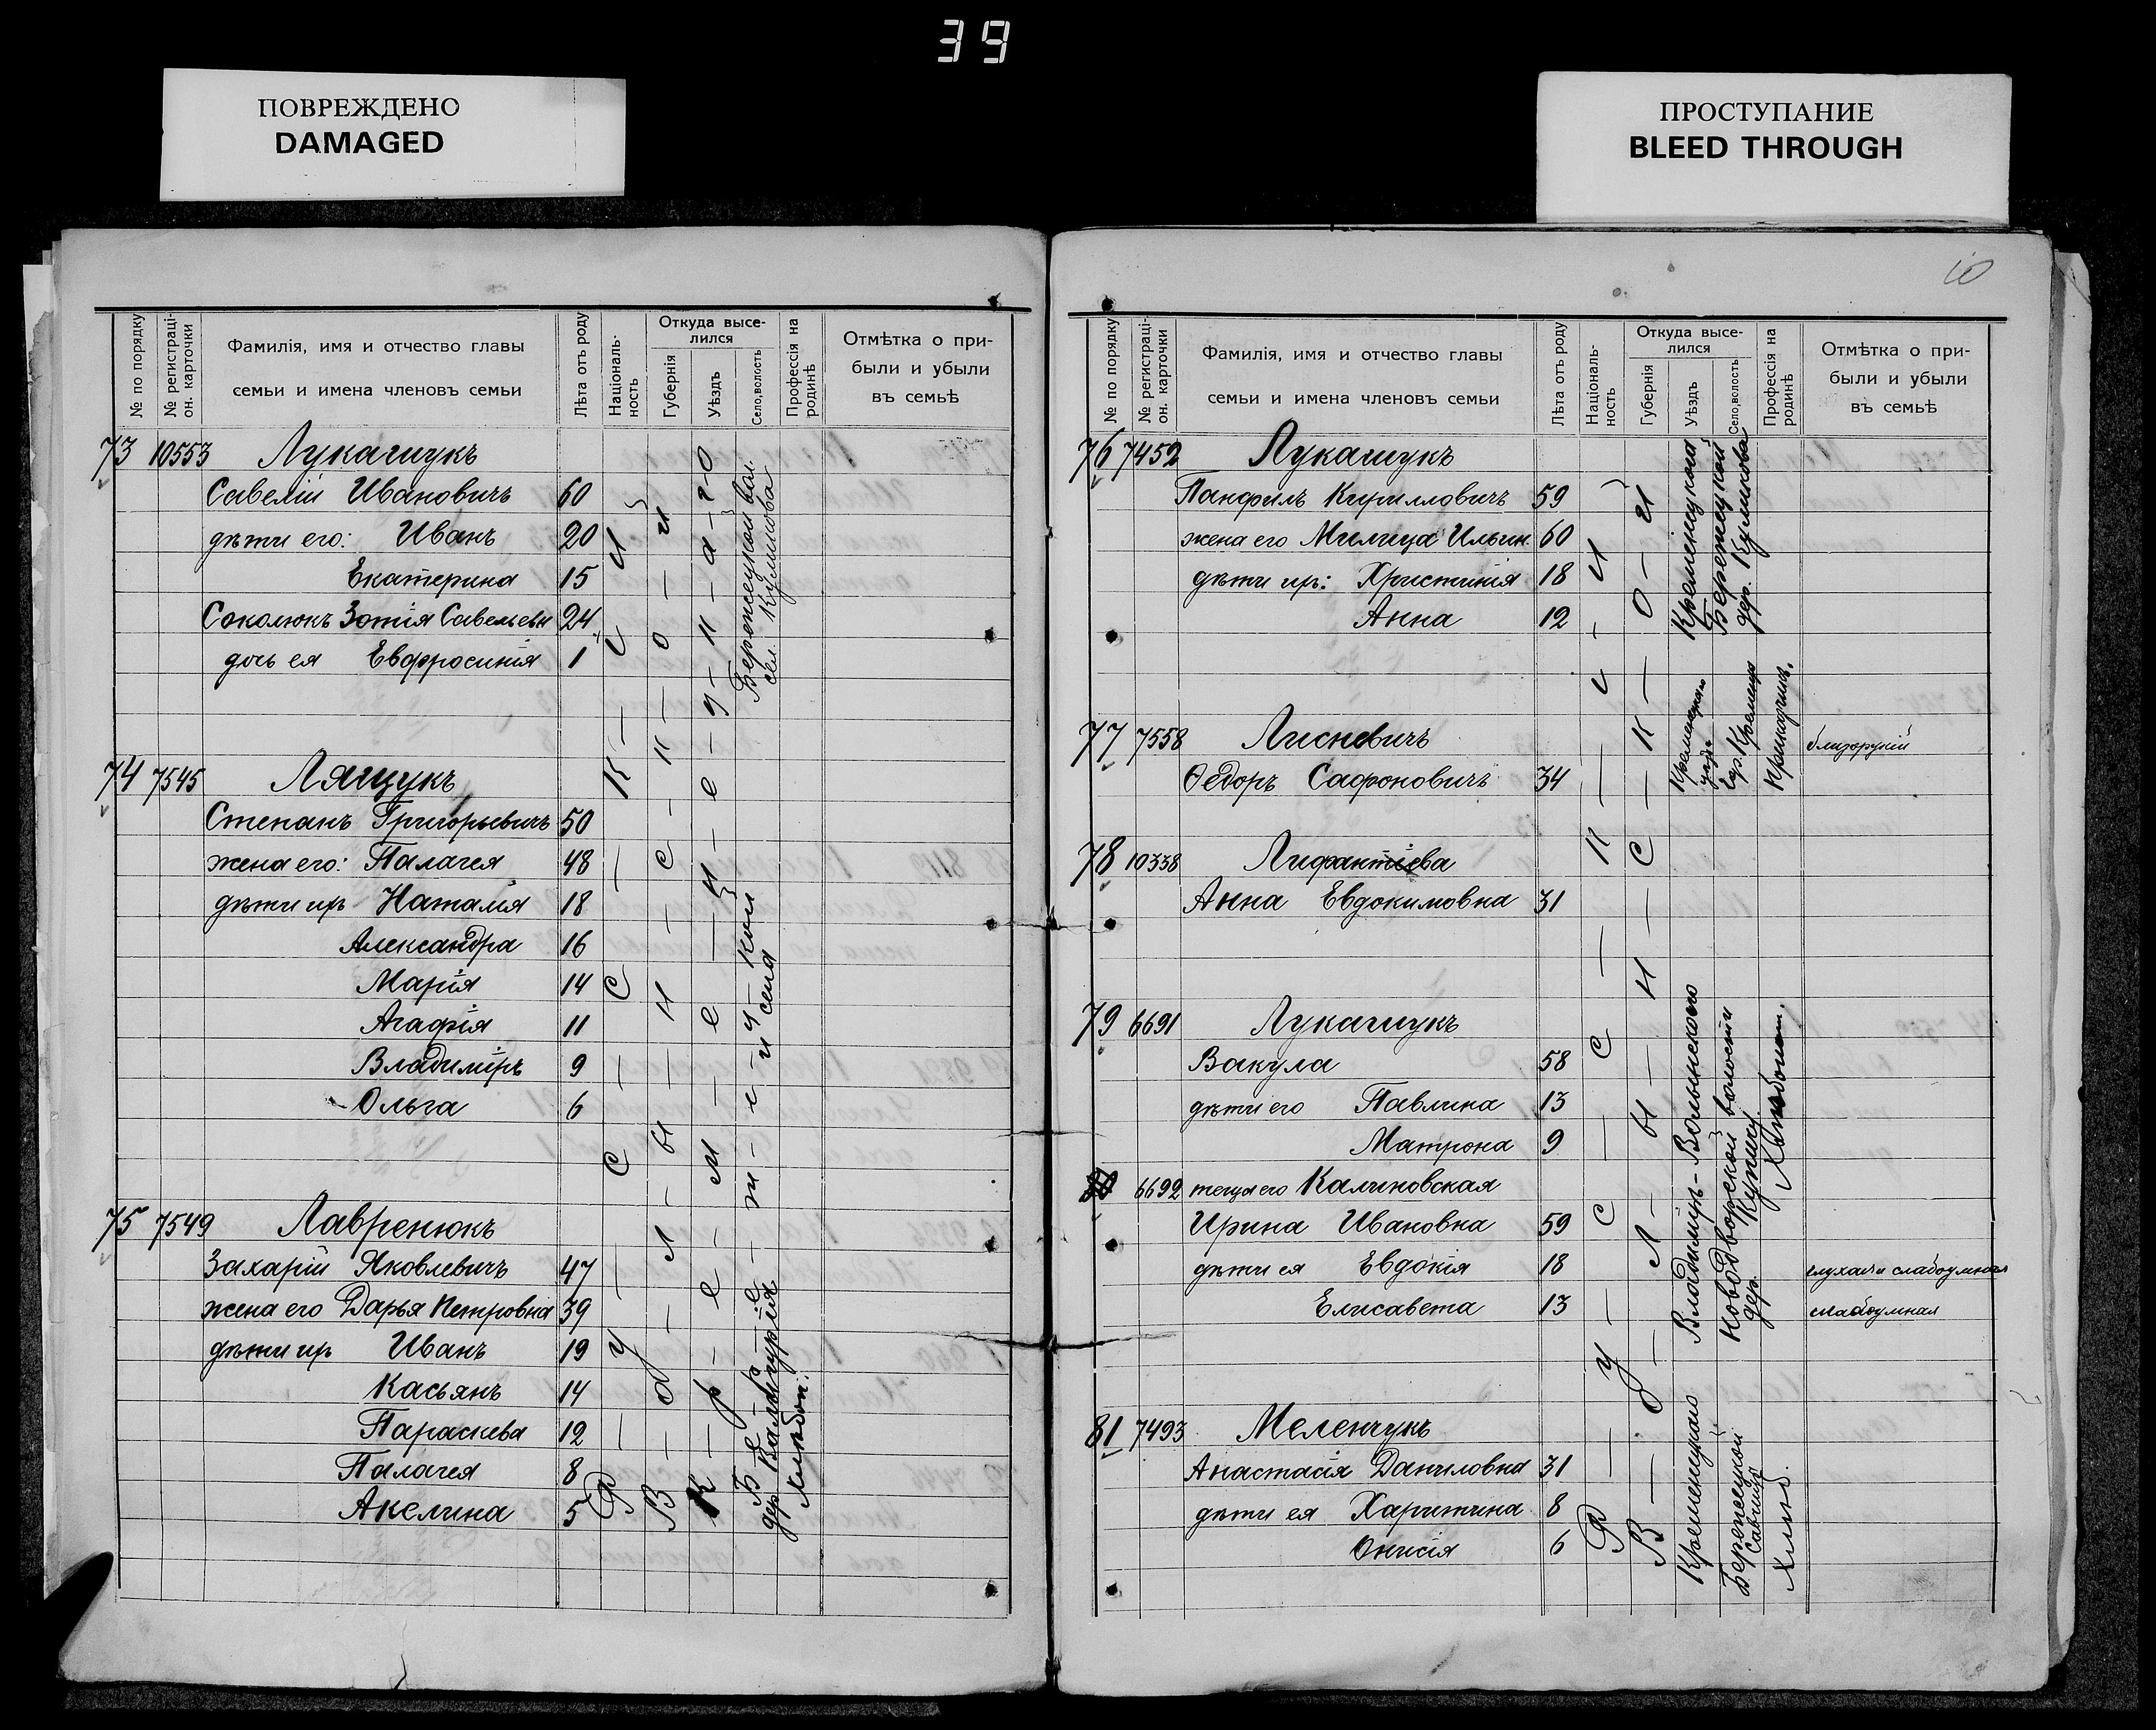 39
ПОВРЕЖДЕНО
DAMAGED
ПРОСТУПАНИЕ
BLEED THROUGH
№ по порядку
№ регистраці-
он. карточки
Фамилія, имя и отчество главы
семьи и имена членовъ семьи
Лѣта отъ роду
Націоналъ-
ность
Откуда высе-
лился
Губернія
Уѣздъ
Село, волость
Профессія на
родинѣ
Отмѣтка о при-
были и убыли
въ семьѣ
73 10553 Лукашукъ
Савелій Ивановичъ 60
дѣти его: Иванъ 20
Екатерина 15
Соколюкъ Зотія Савельевн 24
дочь ея Евфросинія 1
Бережецкой вол.
сел. Куликова
74 7545 Лящукъ
Степанъ Григорьевичъ 50
жена его: Палагея 48
дѣти ихъ Наталія 18
Александра 16
Марія 14
Агафія 11
Владиміръ 9
Ольга 6
75 7549 Лавренюкъ
Захарій Яковлевичъ 47
жена его Дарья Петровна 39
дѣти ихъ Иванъ 19
Касьянъ 14
Параскева 12
Палагея 8
Акелина 5
Р у с с к і и
В о л ы н с к о и
К р е м е н е ц к а г о
Б е р е ж е ц кой
хлѣбоп.
10
№ по порядку
№ регистраці-
он. карточки
Фамилія, имя и отчество главы
семьи и имена членовъ семьи
Лѣта отъ роду
Націоналъ-
ность
Откуда высе-
лился
Губернія
Уѣздъ
Село, волость
Профессія на
родинѣ
Отмѣтка о при-
были и убыли
въ семьѣ
76 7452 Лукашукъ
Панфилъ Кирилловичъ 59
жена его Милица Ильин. 60
дѣти ихъ: Христинія 18
Анна 12
Кременецкаго
Бережецкой
дер. Куликова
77 7558 Лисневичъ
Ѳедоръ Сафоновичъ 34
гор. Кременца
Приказчикъ.
близорукій
78 10338 Лифантіева
Анна Евдокимовна 31
79 6691 Лукашукъ
Вакула 58
дѣти его Павлина 13
Матрона 9
6692 теща его Калиновская
Ирина Ивановна 59
дѣти ея Евдокія 18
Елисавета 13
Владиміръ-Волынскаго
Новодворской волости
дер.
Хлѣбопаш.
глухая и слабоумная
слабоумная
81 7493 Меленчукъ
Анастасія Даниловна 31
дѣти ея Харитина 8
Онисія 6
Р у с с к і и
В о л ы н с к о и
Кременецкаго
Бережецкой
Хлѣб.